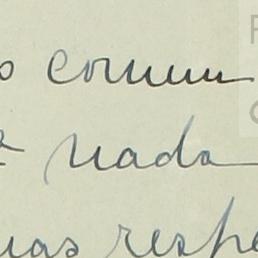 o comum
nada
uas respe